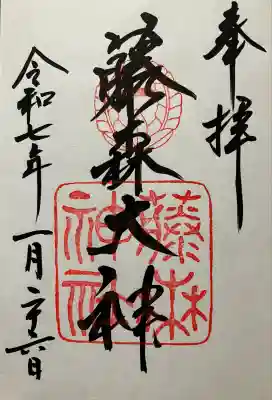 奉拝
藤森大神
藤森神社
令和七年
一月二十六日